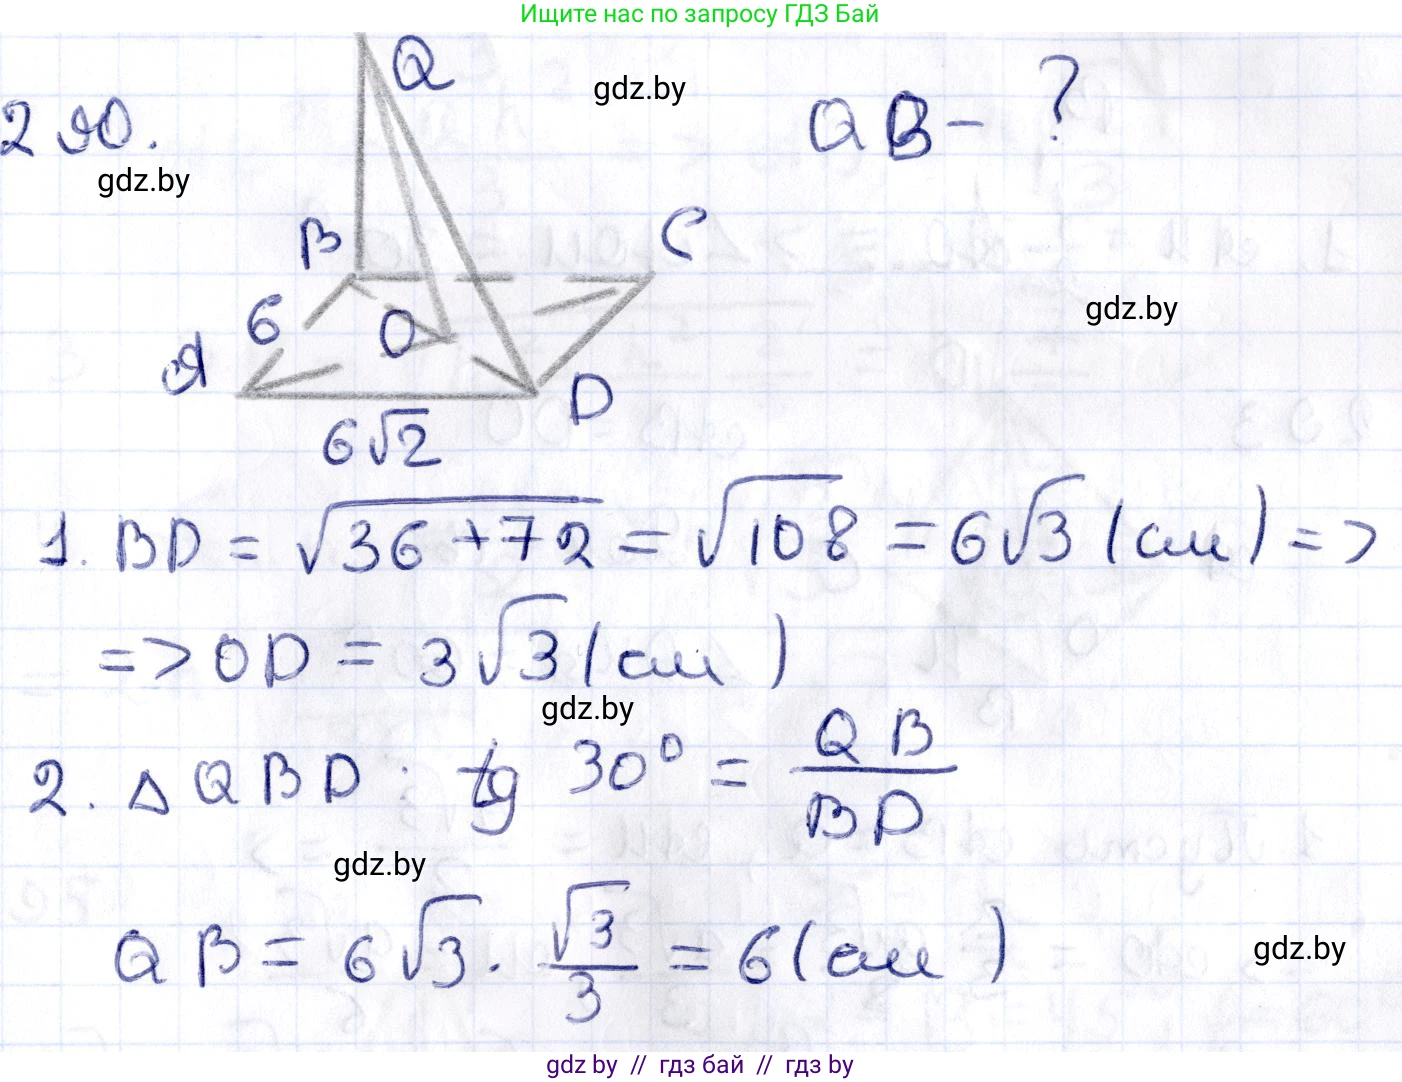 Ищите нас по запросу ГДЗ Бай
290.
Q
QB - ?
gdz.by
gdz.by
B
C
6
O
gdz.by
A
D
6√2
1. BD = √36+72 = √108 = 6√3 (см) =>
=> OD = 3√3 (см)
gdz.by
2. △QBD: tg 30° = QB/BD
gdz.by
QB = 6√3 · √3/3 = 6 (см)
gdz.by
gdz.by // гдз бай // гдз by